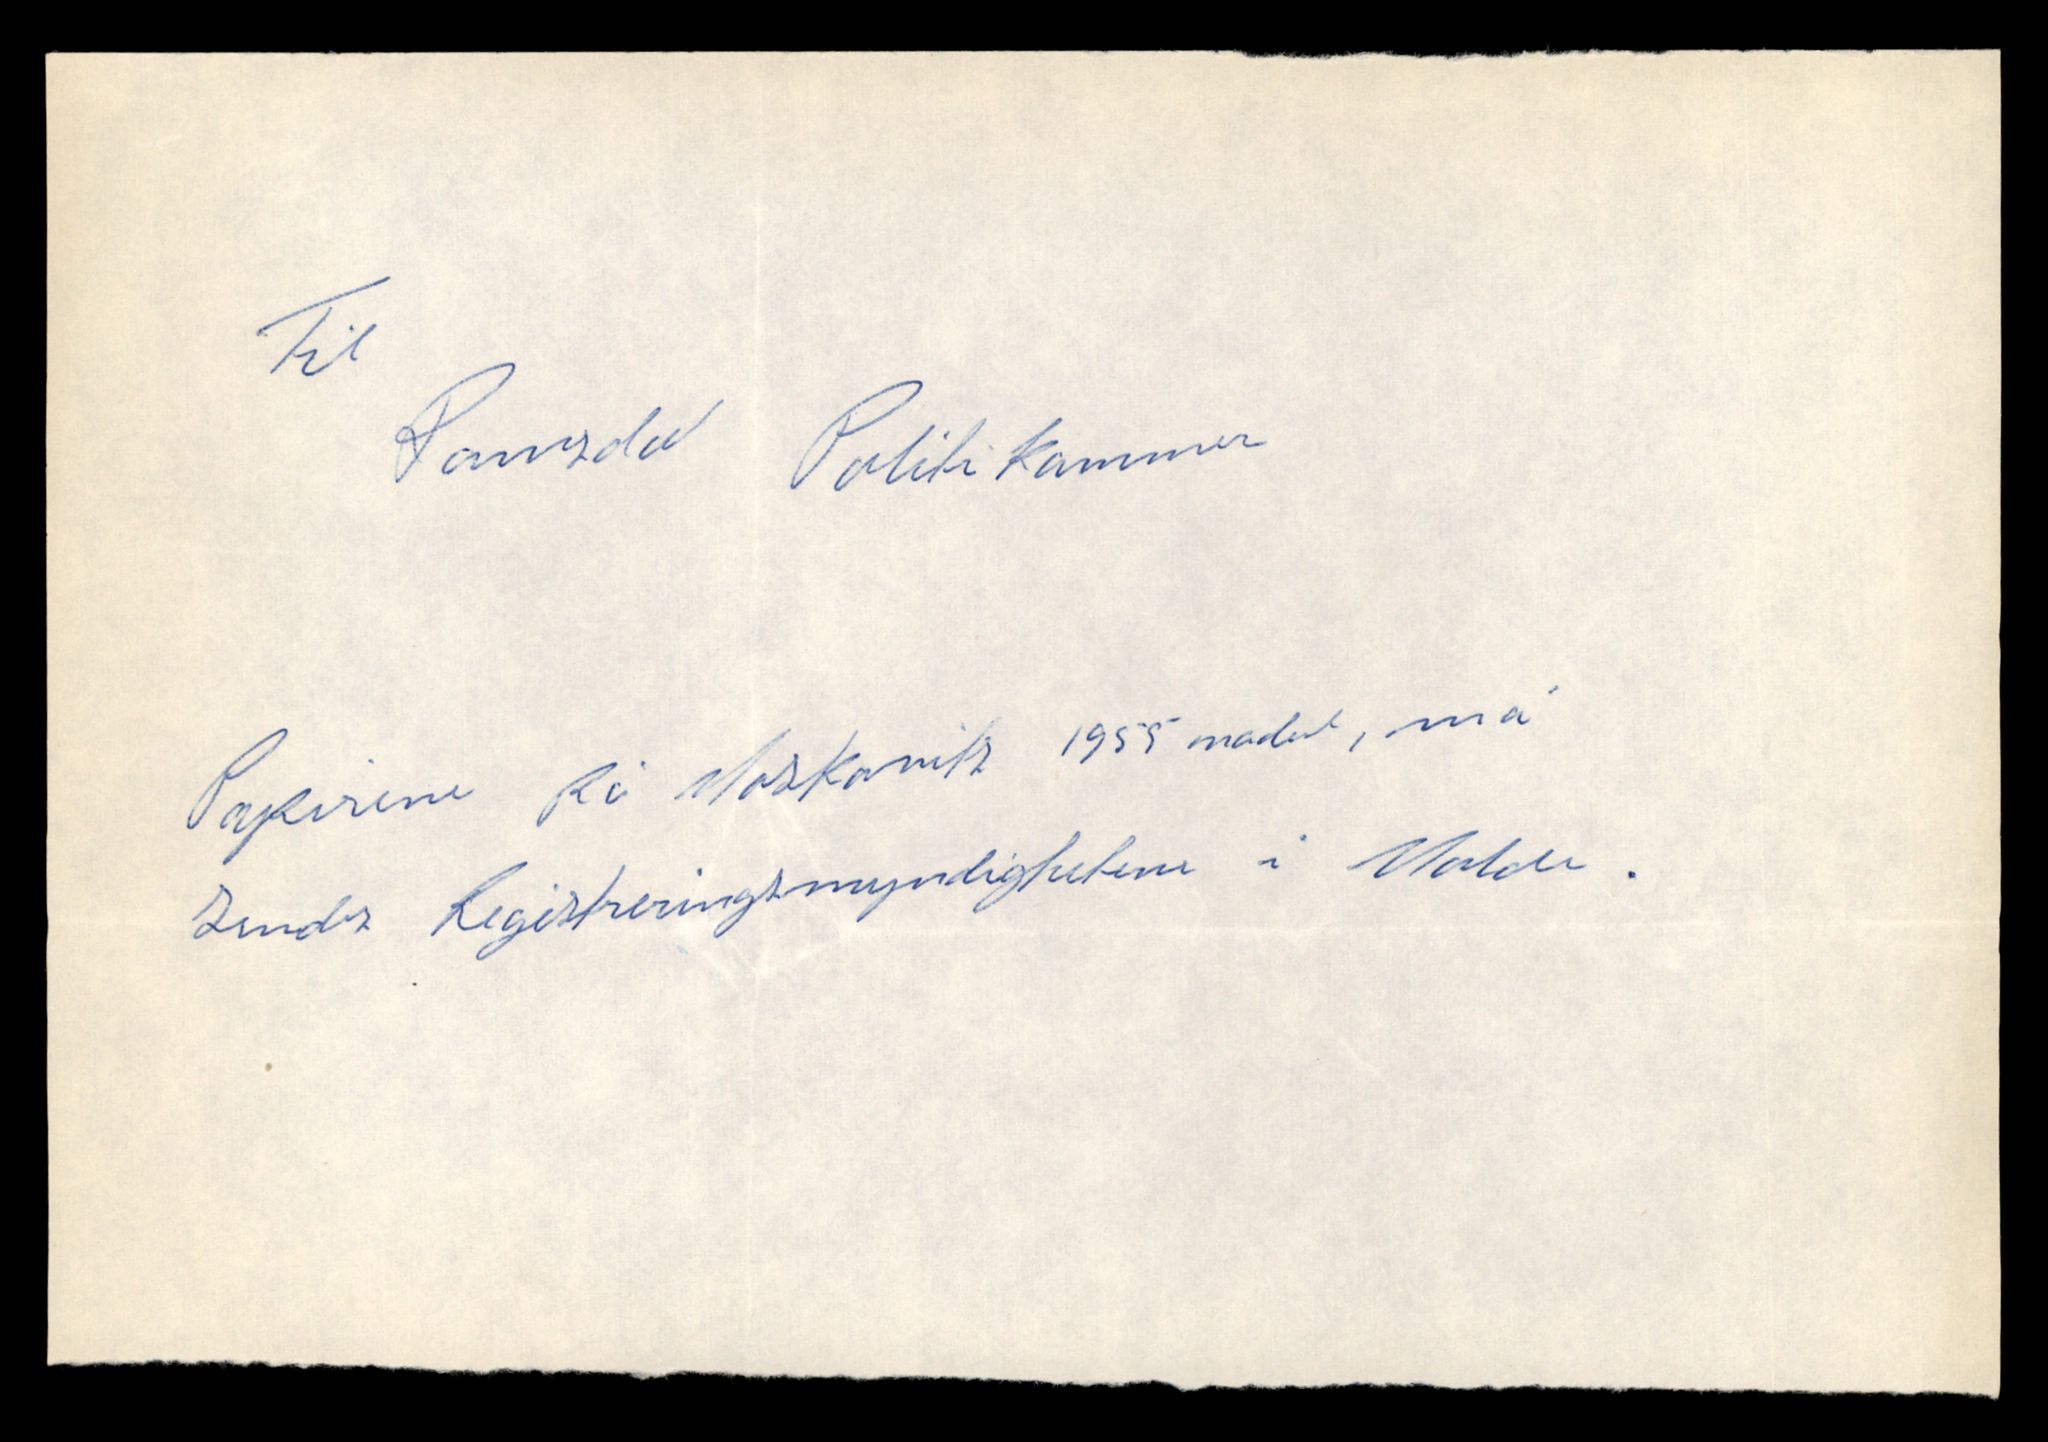 Til
Romsdal Politikammer
Papirene på Moskovits 1955 model, må
sendes Registreringsmyndighetene i Molde.